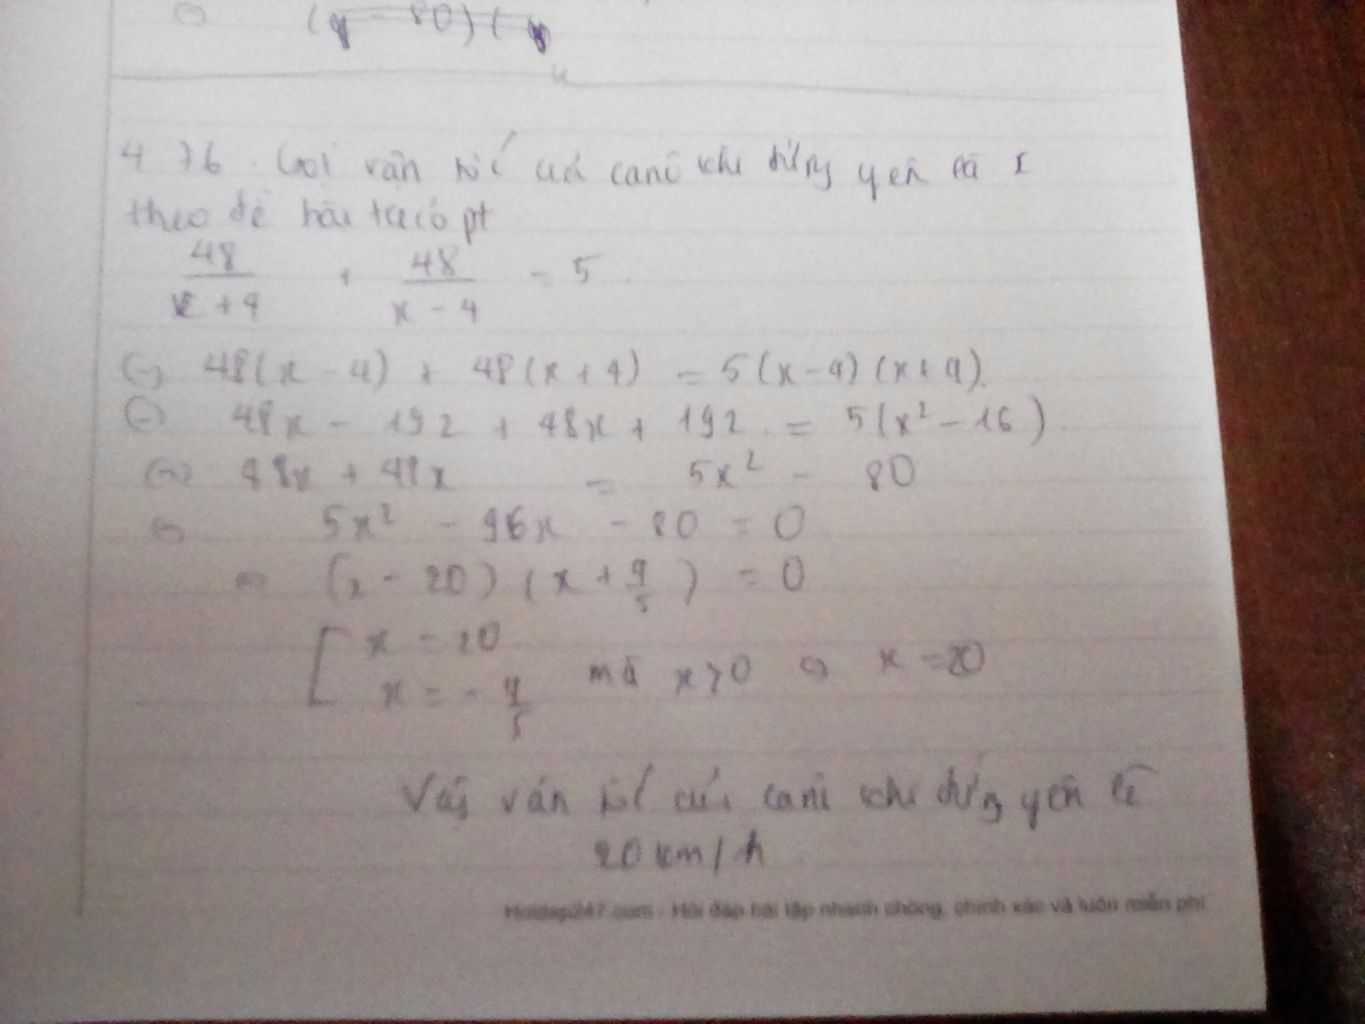 (y - 80) (
4 76. Gọi vận tốc của canô khi đứng yên là x
theo đề bài ta có pt
48/(x+4) + 48/(x-4) = 5
<=> 48(x - 4) + 48(x + 4) = 5(x-4)(x+4).
<=> 48x - 192 + 48x + 192 = 5(x² - 16)
<=> 48x + 48x = 5x² - 80
<=> 5x² - 96x - 80 = 0
<=> (x - 20)(x + 4/5) = 0
[ x = 20
x = - 4/5 mà x > 0 <=> x = 20
Vậy vận tốc của canô khi đứng yên là
20 km/h
Hoidap247.com - Hỏi đáp bài tập nhanh chóng, chính xác và luôn miễn phí